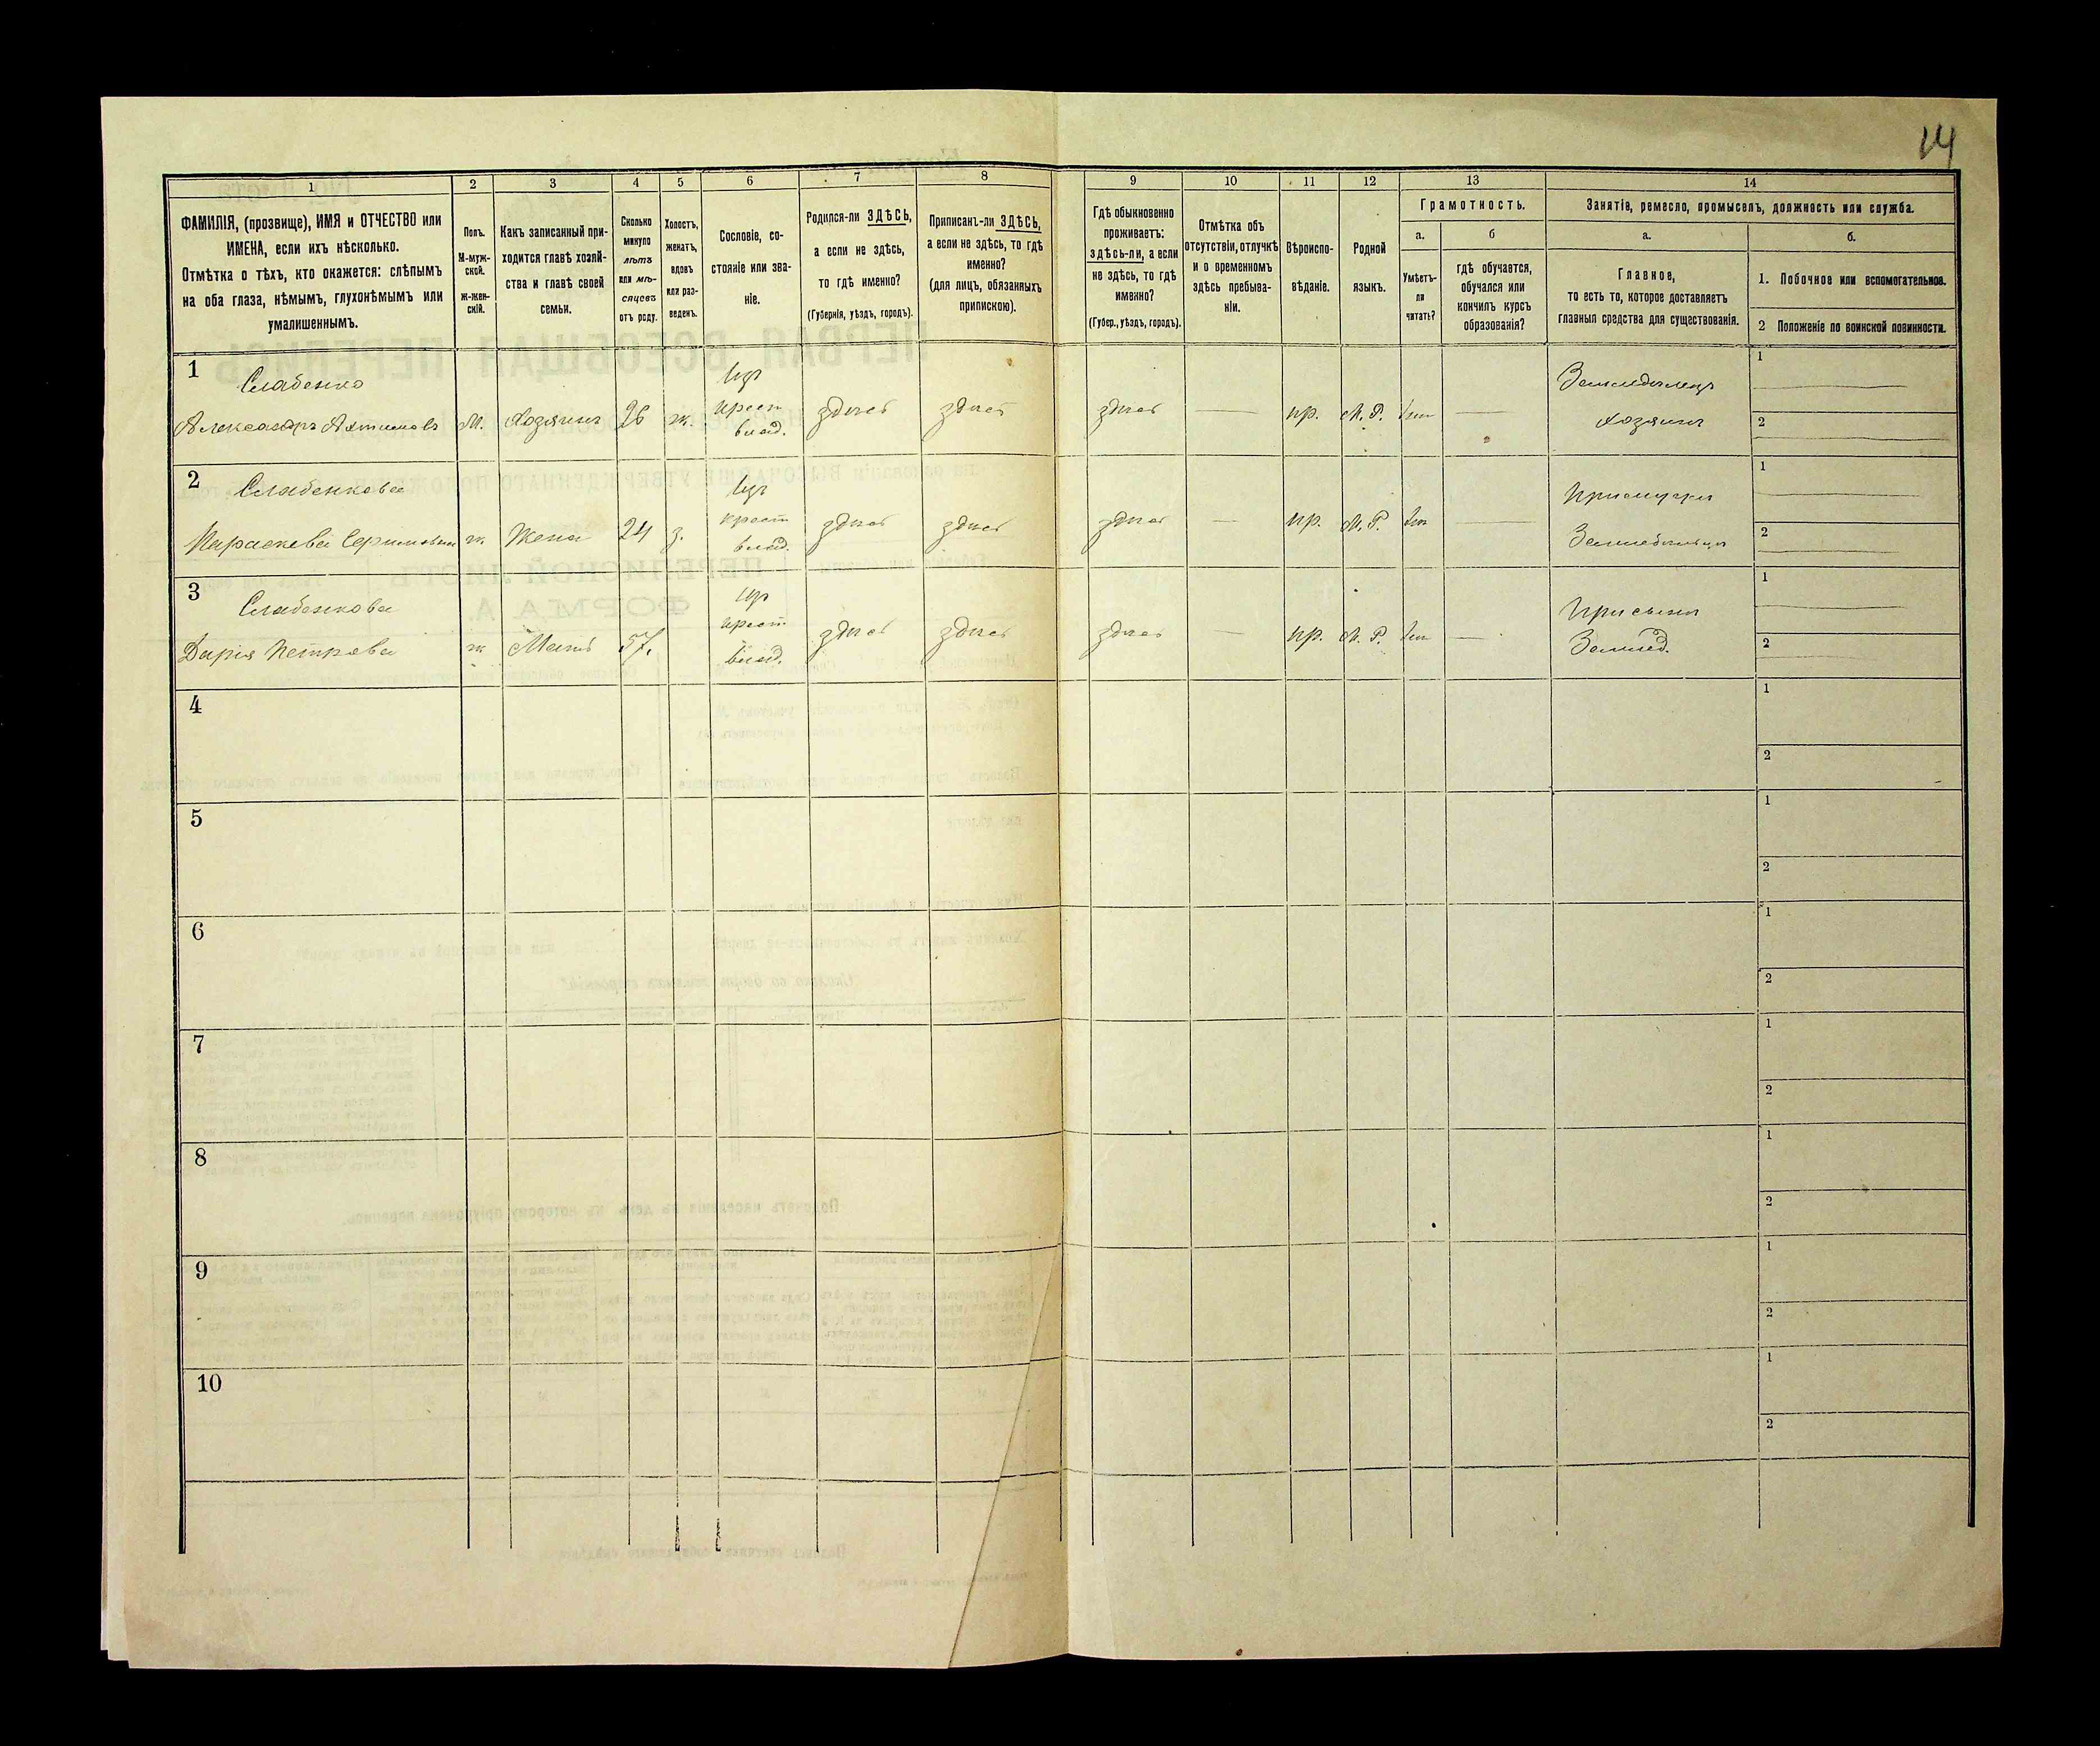 14
1
2
3
4
5
6
7
8
9
10
11
12
13
14
ФАМИЛІЯ, (прозвище), ИМЯ и ОТЧЕСТВО или
ИМЕНА, если ихъ нѣсколько.
Отмѣтка о тѣхъ, кто окажется: слѣпымъ
на оба глаза, нѣмымъ, глухонѣмымъ или
умалишеннымъ.
Полъ.
М-муж-
ской.
ж-жен-
скій.
Какъ записанный при-
ходится главѣ хозяй-
ства и главѣ своей
семьи.
Сколько
минуло
лѣтъ
или мѣ-
сяцевъ
отъ роду.
Холостъ,
женатъ,
вдовъ
или раз-
веденъ.
Сословіе, со-
стояніе или зва-
ніе.
Родился-ли ЗДѢСЬ,
а если не здѣсь,
то гдѣ именно?
(Губернія, уѣздъ, городъ).
Приписанъ-ли ЗДѢСЬ,
а если не здѣсь, то гдѣ
именно?
(для лицъ, обязанныхъ
припискою).
Гдѣ обыкновенно
проживаетъ:
здѣсь-ли, а если
не здѣсь, то гдѣ
именно?
(Губер., уѣздъ, городъ).
Отмѣтка объ
отсутствіи, отлучкѣ
и о временномъ
здѣсь пребыва-
ніи.
Вѣроиспо-
вѣданіе.
Родной
языкъ.
Грамотность.
а.
Умѣетъ-
ли
читать?
б
гдѣ обучается,
обучался или
кончилъ курсъ
образованія?
Занятіе, ремесло, промыселъ, должность или служба.
а.
Главное,
то есть то, которое доставляетъ
главныя средства для существованія.
б.
1. Побочное или вспомогательное.
2 Положеніе по воинской повинности.
1
Слабенко
Александръ
М.
Хозяинъ
26
ж.
Изъ
крест.
влад.
здѣсь
здѣсь
здѣсь
—
пр.
М. Р.
—
Земледѣлецъ
хозяинъ
1
2
2
Слабенкова
Параскева
ж.
Жена
24
з.
Изъ
крест.
влад.
здѣсь
здѣсь
здѣсь
—
пр.
М. Р.
—
При мужѣ
1
2
3
Слабенкова
Дарія Петрова
ж.
Мать
57.
Изъ
крест.
влад.
здѣсь
здѣсь
здѣсь
—
пр.
М. Р.
—
При сынѣ
Землед.
1
2
4
1
2
5
1
2
6
1
2
7
1
2
8
1
2
9
1
2
10
1
2